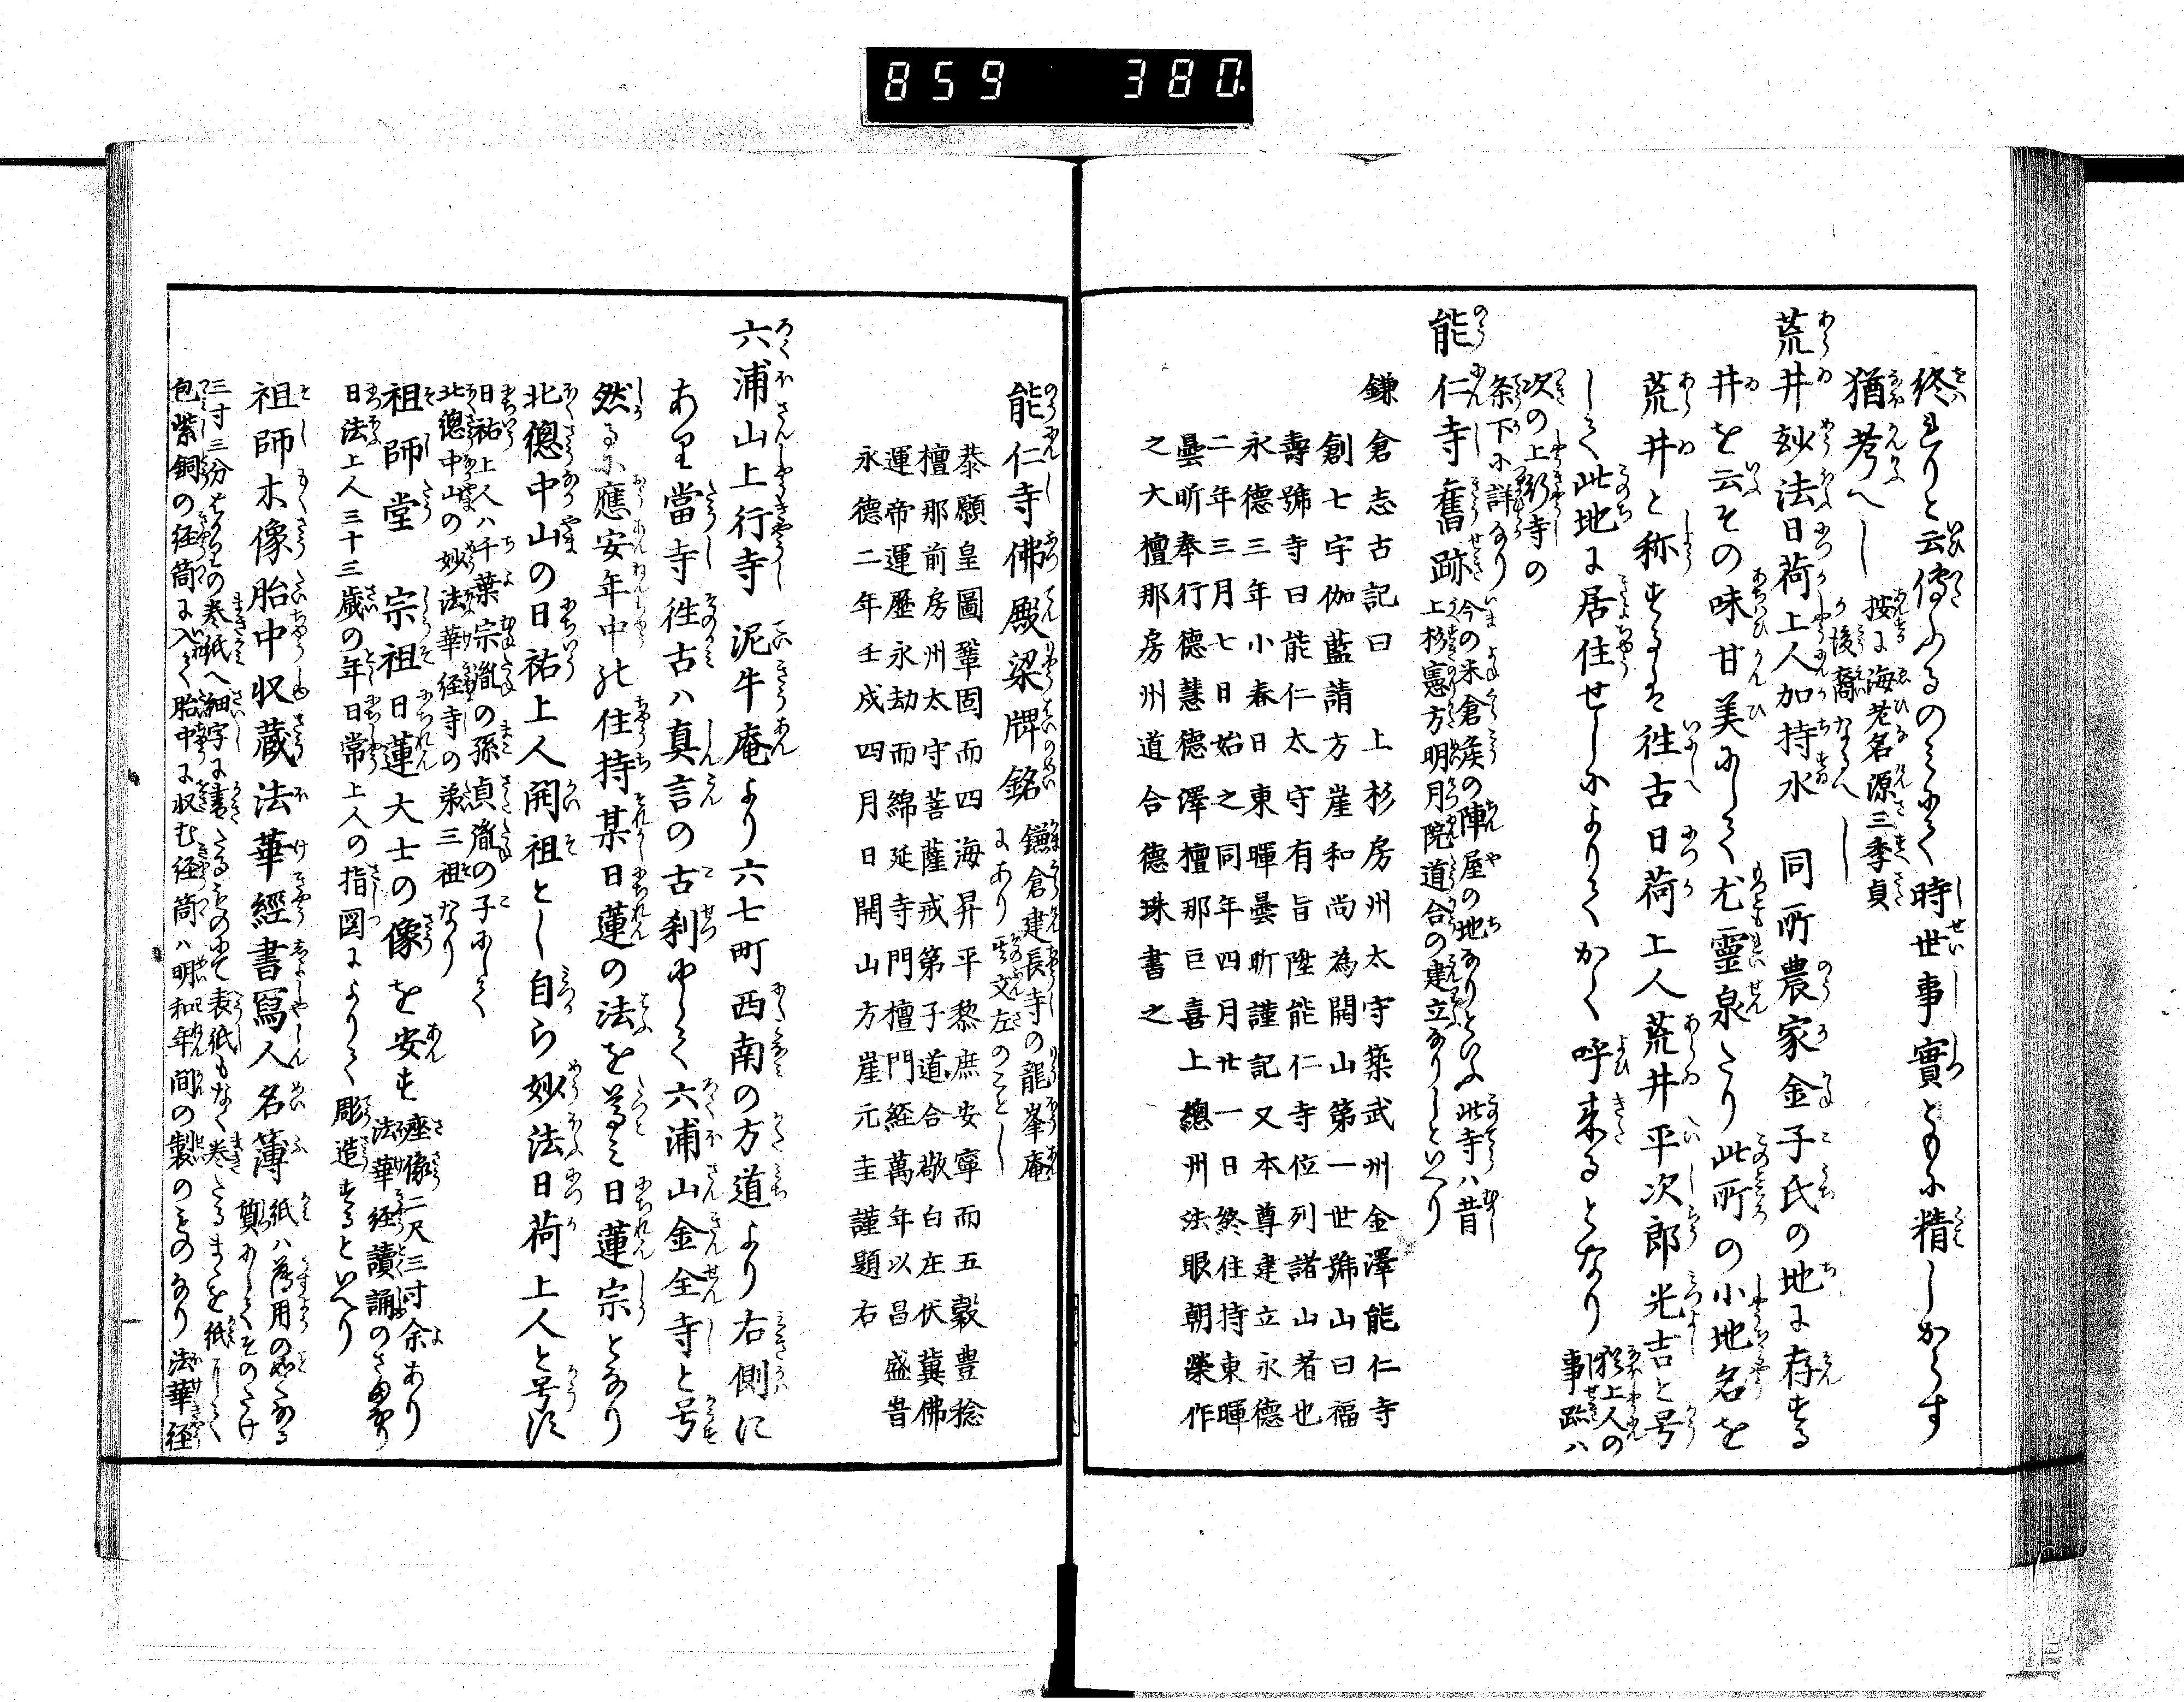 859 380.
終れりと云傳ふるのみにて時世事實ともに精しからす
猶考へし 按に海老名源三季貞
か後裔なるへし
荒井玅法日荷上人加持水 同所農家金子氏の地に存する
井を云その味甘美にして尤靈泉たり此所の小地名を
荒井と称するは徃古日荷上人荒井平次郎光吉と号
して此地に居住せしによりてかく呼来るとなり 猶上人の
事跡ハ
次の上行寺の
条下に詳なり
能仁寺舊跡 今の米倉矦の陣屋の地なりといふ此寺ハ昔
上杉憲方明月院道合の建立なりしといへり
鎌倉志古記曰 上杉房州太守築武州金澤能仁寺
創七宇伽藍請方崖和尚為開山第一世號山曰福
壽號寺曰能仁太守有旨陞能仁寺位列諸山者也
永德三年小春日東暉曇昕謹記又本尊建立永德
二年三月七日始之同年四月廿一日終住持東暉
曇昕奉行德慧德澤檀那巨喜上總州法眼朝榮作
之大檀那房州道合德珠書之
能仁寺佛殿梁牌銘 鎌倉建長寺の龍峯庵
にあり其文左のことし
恭願皇圖鞏固而四海昇平黎庶安寧而五穀豊稔
檀那前房州太守菩薩戒第子道合敬白左伏冀佛
運帝運歷永劫而綿延寺門檀門経萬年以昌盛旹
永德二年壬戌四月日開山方崖元圭謹題右
六浦山上行寺 泥牛庵より六七町西南の方道より右側に
あり當寺徃古ハ真言の古刹にして六浦山金全寺と号
然るに應安年中の住持某日蓮の法を尊み日蓮宗となり
北德中山の日祐上人開祖とし自ら妙法日荷上人と号に
日祐上人ハ千葉宗胤の孫貞胤の子にして
北德中山の妙法華経寺の第三祖なり
祖師堂 宗祖日蓮大士の像を安す 座像二尺三寸余あり
法華経讀誦のさまなり
日法上人三十三歳の年日常上人の指図によりて彫造するといへり
祖師木像胎中収蔵法華經書寫人名薄 紙ハ薄用の如くなる
質にしてそのたけ
三寸三分はかりの巻紙へ細字に書たるものにて表紙もなく巻たるまゝを紙にて
包紫銅の経筒に入て胎中に収む経筒ハ明和年間の製のものなり法華経